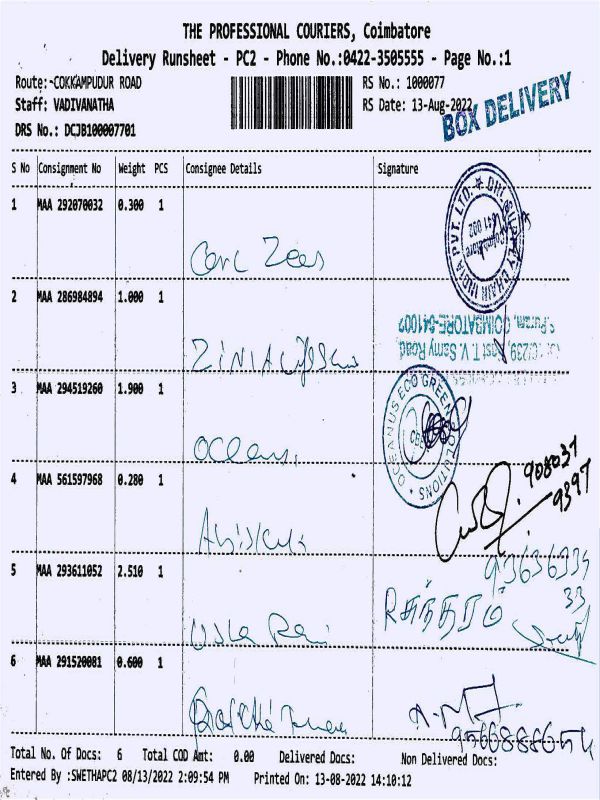 THE PROFESSIONAL COURIERS, Coimbatore
Delivery Runsheet - PC2 - Phone No.:0422-3505555 - Page No.:1
Route:-COKKAMPUDUR ROAD
RS No.: 1000077
Staff: VADIVANATHA
RS Date: 13-Aug-2022
DRS No.: DCJB100007701
BOX DELIVERY
S No Consignment No Weight PCS Consignee Details Signature
1 MAA 292070032 0.300 1
DHL SUPPLY CHAIN INDIA PVT. LTD.
Coimbatore
641 002
2 MAA 286984894 1.000 1
East T.V. Samy Road
R.S.Puram, COIMBATORE-641002
ZINIA
3 MAA 294519260 1.900 1
OCEANUS ECO GREEN SOLUTIONS
CBE
4 MAA 561597968 0.280 1
908037
9397
5 MAA 293611052 2.510 1
R சுந்தரம்
33
6 MAA 291520081 0.600 1
Total No. Of Docs: 6 Total COD Amt: 0.00 Delivered Docs: Non Delivered Docs:
Entered By :SWETHAPC2 08/13/2022 2:09:54 PM Printed On: 13-08-2022 14:10:12